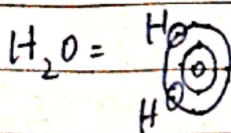 H₂O = H
O
H